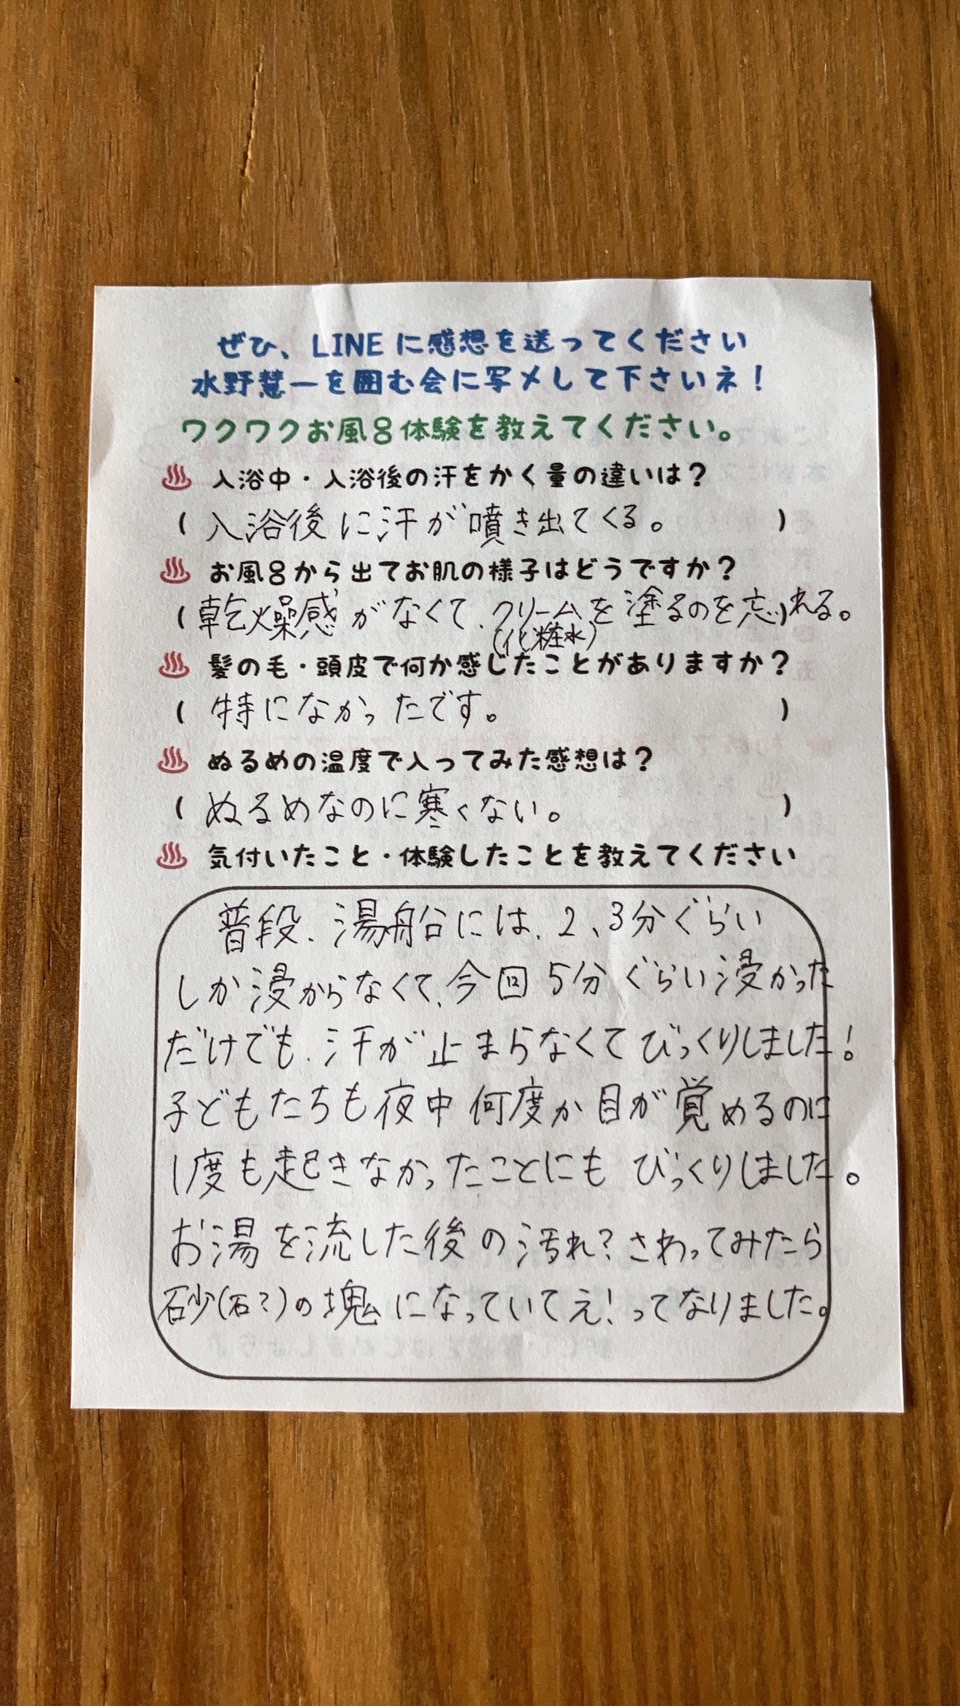 ぜひ、LINEに感想を送ってください
水野慧一を囲む会に写メして下さいネ！
ワクワクお風呂体験を教えてください。
♨ 入浴中・入浴後の汗をかく量の違いは？
( 入浴後に汗が噴き出てくる。 )
♨ お風呂から出てお肌の様子はどうですか？
( 乾燥感がなくて、クリームを塗るのを忘れる。)
(化粧水)
♨ 髪の毛・頭皮で何か感じたことがありますか？
( 特になかったです。 )
♨ ぬるめの温度で入ってみた感想は？
( ぬるめなのに寒くない。 )
♨ 気付いたこと・体験したことを教えてください
普段、湯船には、2、3分ぐらい
しか浸からなくて、今回5分ぐらい浸かった
だけでも、汗が止まらなくてびっくりしました！
子どもたちも夜中何度か目が覚めるのに
1度も起きなかったことにもびっくりしました。
お湯を流した後の汚れ？さわってみたら
砂(石？)の塊になっていてえ！ってなりました。